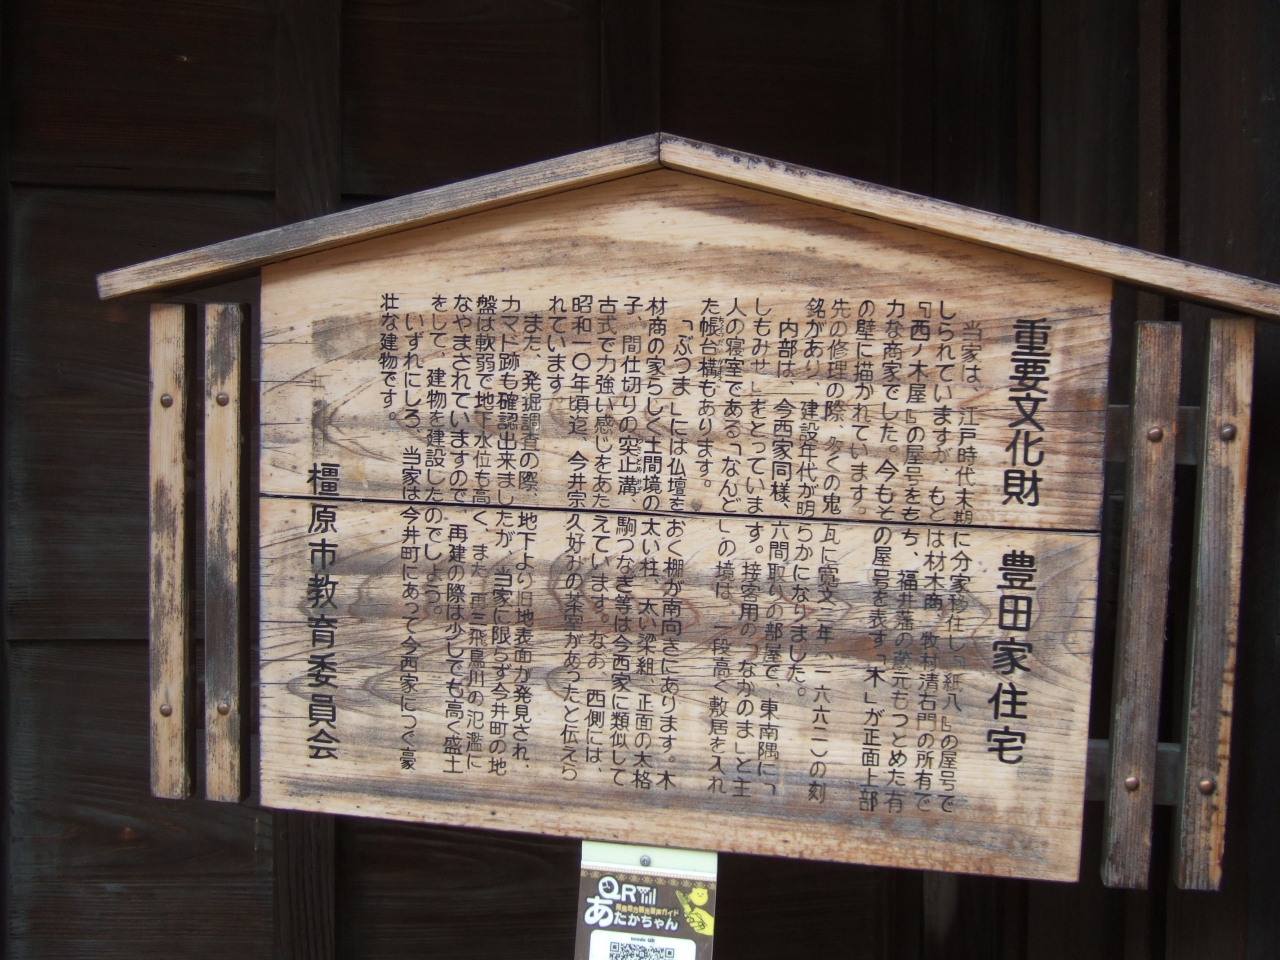 重要文化財 豊田家住宅
当家は、江戸時代末期に分家移住し「紙八」の屋号で
しられていますが、もとは材木商、牧村清右門の所有で
『西ノ木屋』の屋号をもち、福井藩の蔵元もつとめた有
力な商家でした。今もその屋号を表す「木」が正面上部
の壁に描かれています。
先の修理の際、多くの鬼瓦に寛文二年(一六六二)の刻
銘があり、建設年代が明らかになりました。
内部は、今西家同様、六間取りの部屋で、東南隅に「
しもみせ」をとっています。接客用の「なかのま」と主
人の寝室である「なんど」の境は、一段高く敷居を入れ
た帳台構もあります。
「ぶつま」には仏壇をおく棚が南向きにあります。木
材商の家らしく土間境の太い柱、太い梁組、正面の太格
子。間仕切りの突止溝、駒つなぎ等は今西家に類似して
古式で力強い感じをあたえています。なお、西側には、
昭和一〇年頃迄、今井宗久好みの茶室があったと伝えら
れています。
また、発掘調査の際、地下より旧地表面が発見され、
カマド跡も確認出来ましたが、当家に限らず今井町の地
盤は軟弱で地下水位も高く、また再三飛鳥川の氾濫に
なやまされていますので、再建の際は少しでも高く盛土
をして、建物を建設したのでしょう。
いずれにしろ、当家は今井町にあって今西家につぐ豪
壮な建物です。
橿原市教育委員会
QR
あたかちゃん